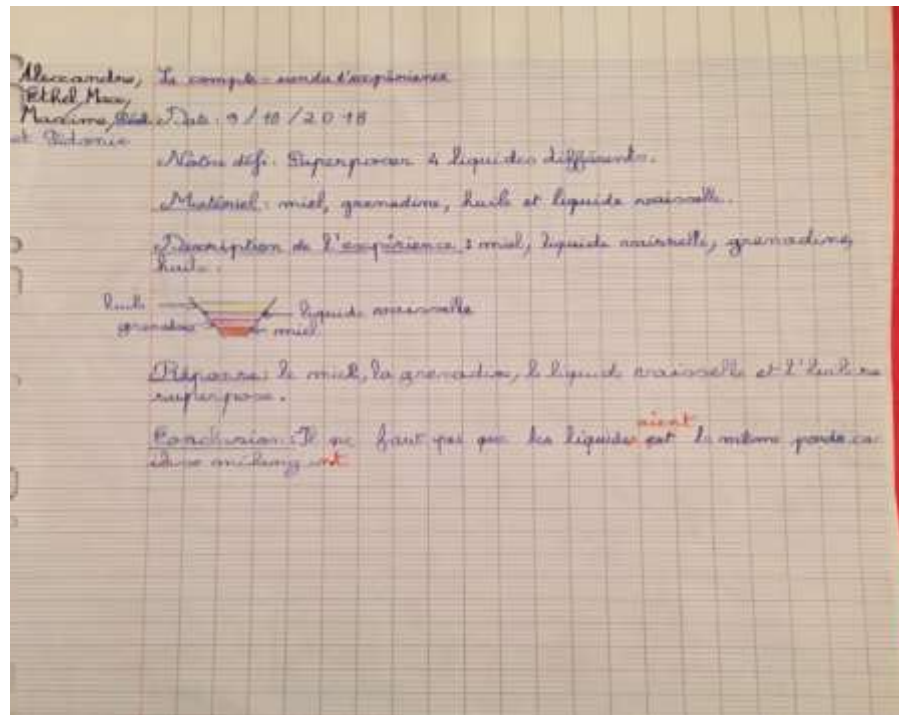 Alexandre,
Ethel, Max,
Maxime,
et Sidonie
Le compte-rendu d'expérience
Date : 9/10/2018
Notre défi : Superposer 4 liquides différents.
Matériel : miel, grenadine, huile et liquide vaisselle.
Description de l'expérience : miel, liquide vaisselle, grenadine,
huile.
huile
liquide vaisselle
grenadine
miel
Réponse : le miel, la grenadine, le liquide vaisselle et l'huile se
superpose.
aient
Conclusion : Il ne faut pas que les liquides est le même poids
nt